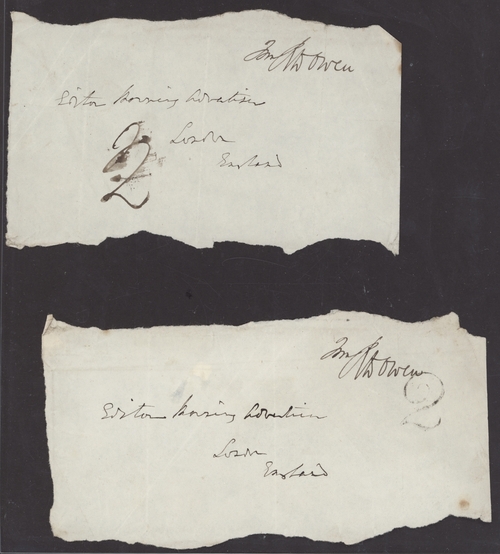 Fm R D Owen
Editor Morning Advertiser
2
London
England
Fm R D Owen
2
Editor Morning Advertiser
London
England